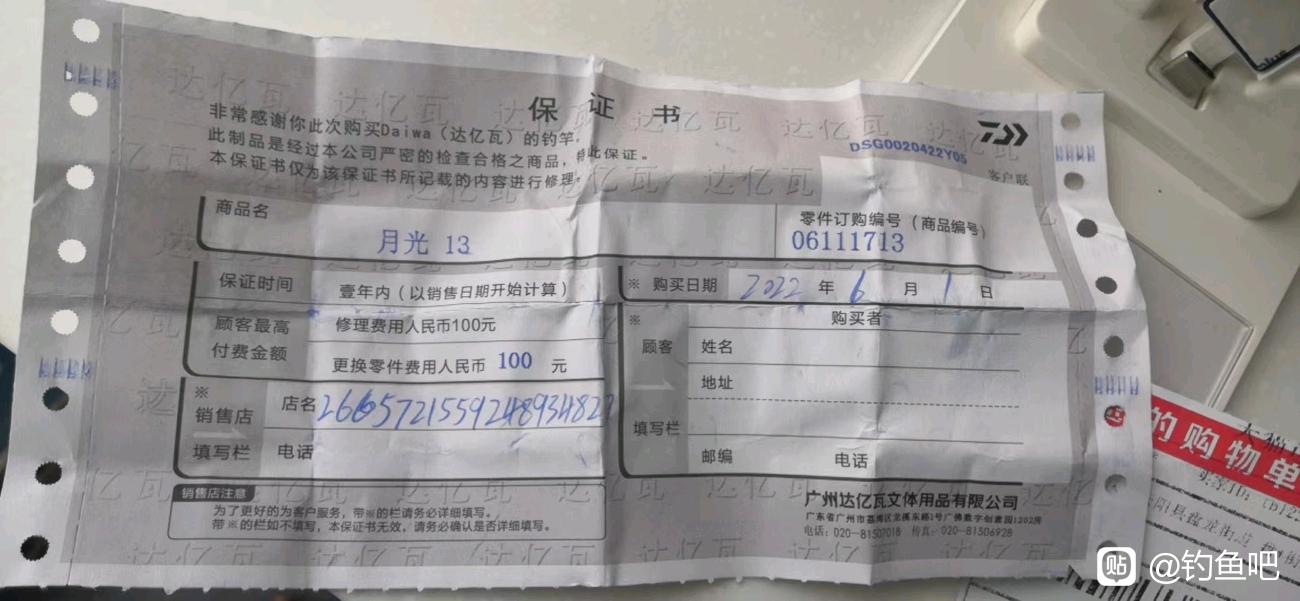 保证书
非常感谢你此次购买Daiwa（达亿瓦）的钓竿，
此制品是经过本公司严密的检查合格之商品，特此保证。
本保证书仅为该保证书所记载的内容进行修理。
DSG0020422Y05
客户联
商品名
月光 13
零件订购编号（商品编号）
06111713
保证时间
壹年内（以销售日期开始计算）
※ 购买日期 2022 年 6 月 1 日
顾客最高
付费金额
修理费用人民币100元
更换零件费用人民币 100 元
※
顾客
填写栏
购买者
姓名
地址
邮编
电话
※
销售店
填写栏
店名 2665721559248934827
电话
销售店注意
为了更好的为客户服务，带※的栏请务必详细填写。
带※的栏如不填写，本保证书无效，请务必确认是否详细填写。
广州达亿瓦文体用品有限公司
广东省广州市荔湾区龙溪东路1号广佛数字创意园1202房
电话：020-81507018 传真：020-81506928
的购物单
贴 @钓鱼吧